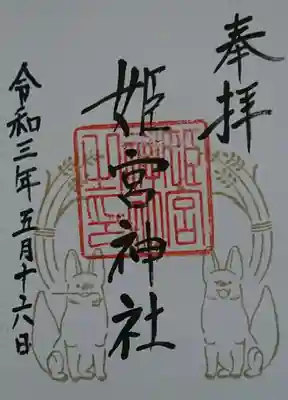 奉拝
姫宮神社
令和三年五月十六日